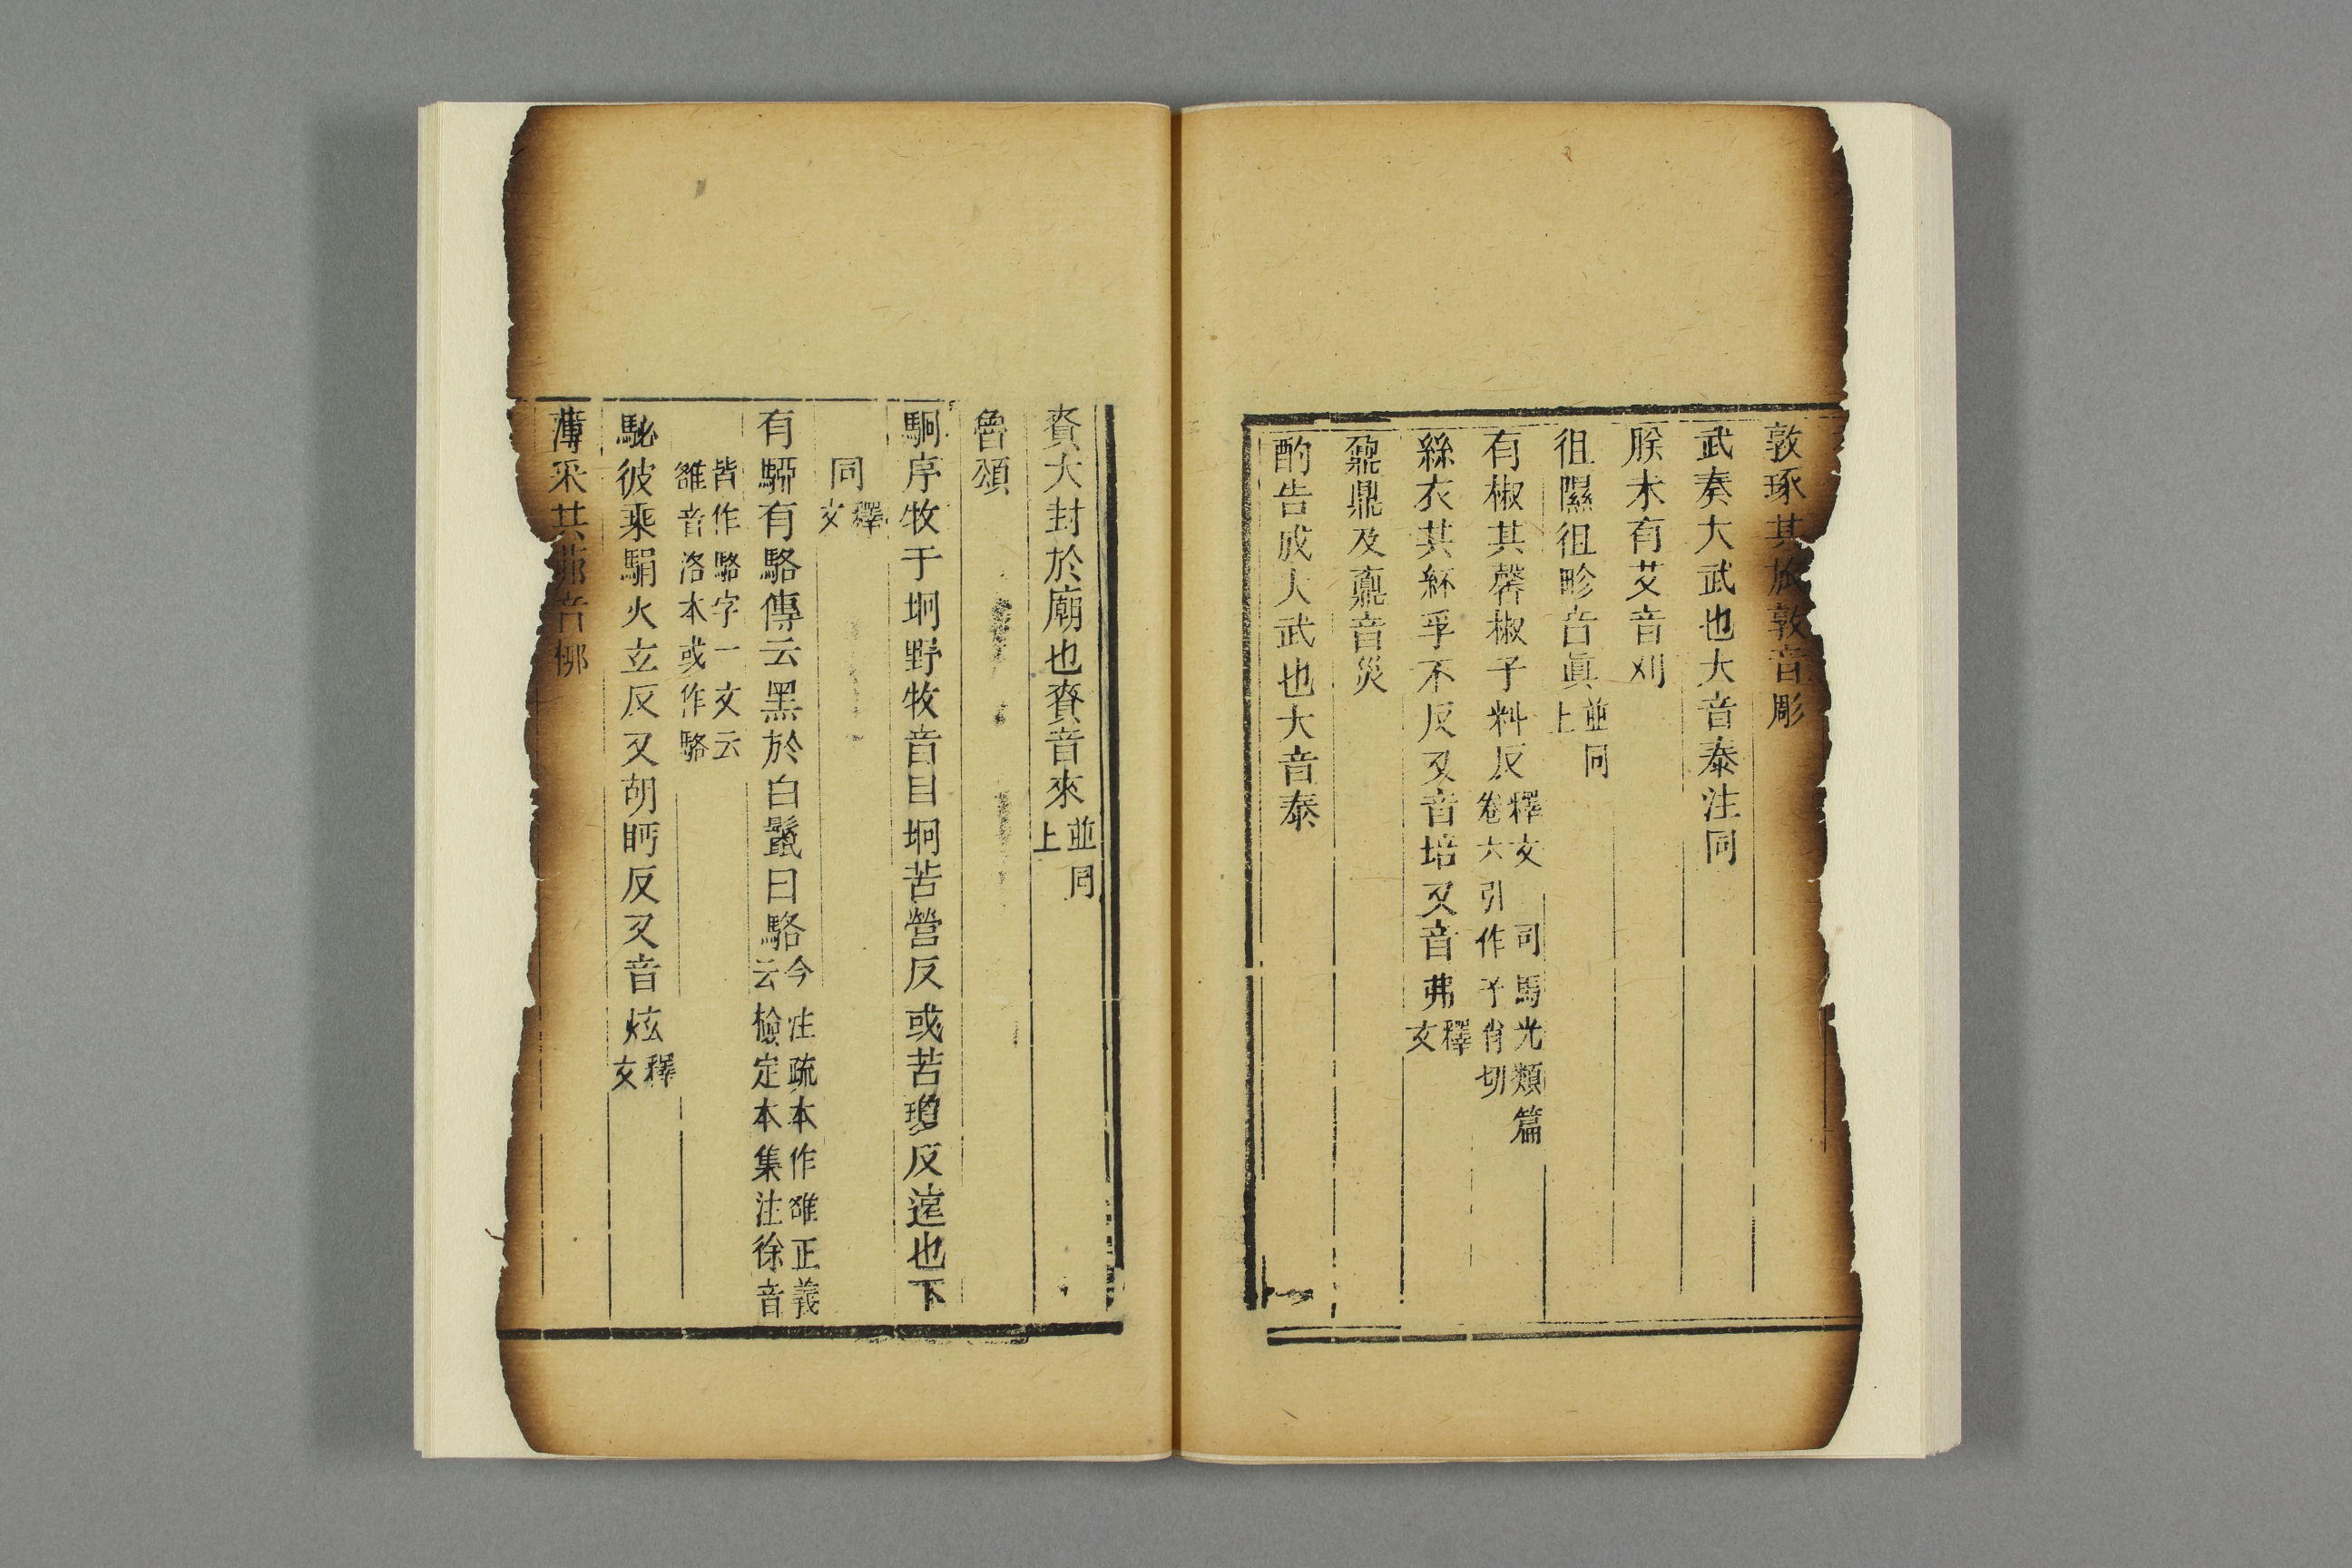 敦琢其旅敦音彫
武奏大武也大音泰注同
朕未有艾音刈
徂隰徂畛音眞並同上
有椒其馨椒子料反釋文 司馬光類篇卷六引作子肖切
絲衣其紑孚不反又音培又音弗釋文
鼐鼎及鼒音災
酌告成大武也大音泰
賚大封於廟也賚音來並同上
魯頌
駉序牧于坰野牧音目坰苦營反或苦瓊反遠也下
同釋文
有驒有駱傳云黑於白鬣曰駱今注疏本作雒正義云檢定本集注徐音
皆作駱字一文云雒音洛本或作駱
駜彼乘駽火玄反又胡眄反又音炫釋文
薄采其茆音柳